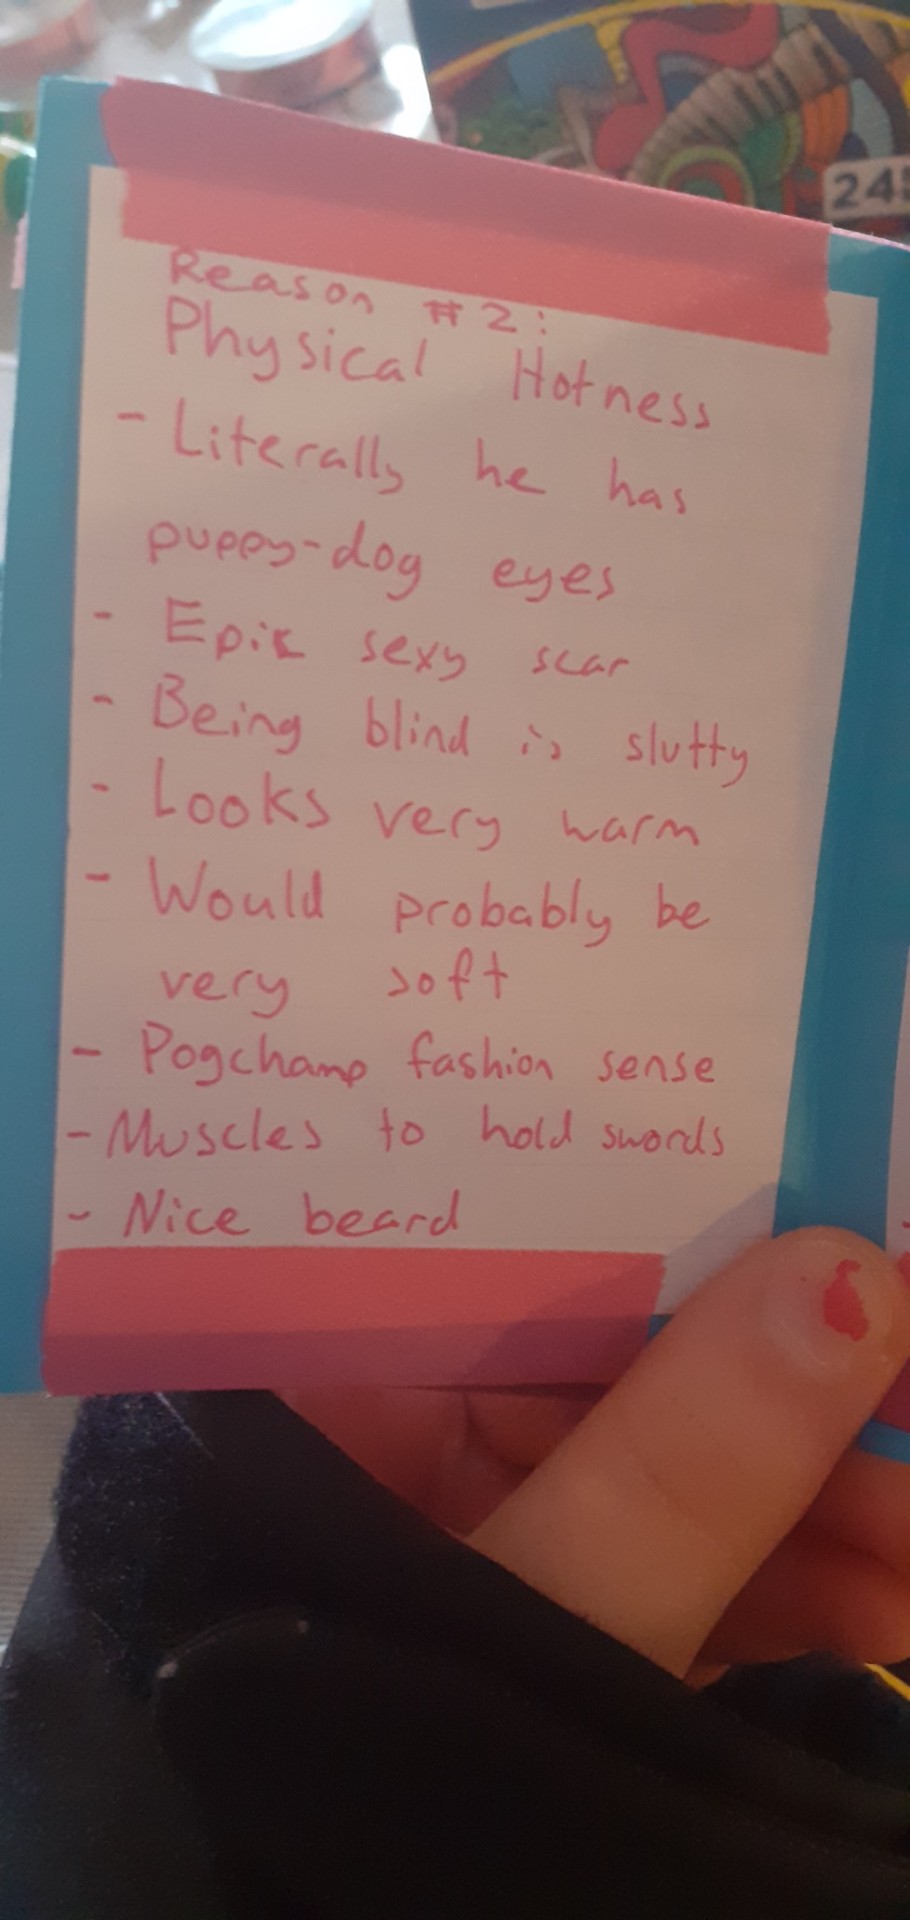 245
Reason #2:
Physical Hotness
- Literally he has
puppy-dog eyes
- Epic sexy scar
- Being blind is slutty
- Looks very warm
- Would probably be
very soft
- Pogchamp fashion sense
- Muscles to hold swords
- Nice beard